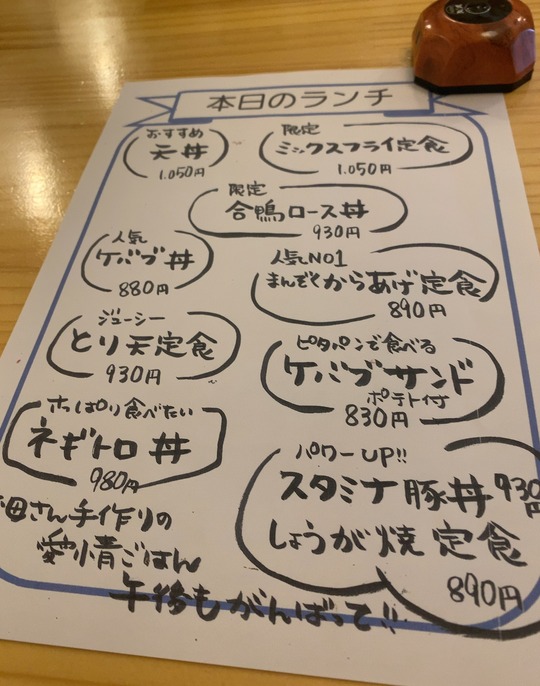 本日のランチ
おすすめ
天丼
1.050円
限定
ミックスフライ定食
1.050円
限定
合鴨ロース丼
930円
人気
ケバブ丼
880円
人気NO1
まんぞくからあげ定食
890円
ジューシー
とり天定食
930円
ピタパンで食べる
ケバブサンド
ポテト付
830円
さっぱり食べたい
ネギトロ丼
980円
パワーUP!!
スタミナ豚丼 930円
しょうが焼定食
890円
母さん手作りの
愛情ごはん
午後もがんばって!!